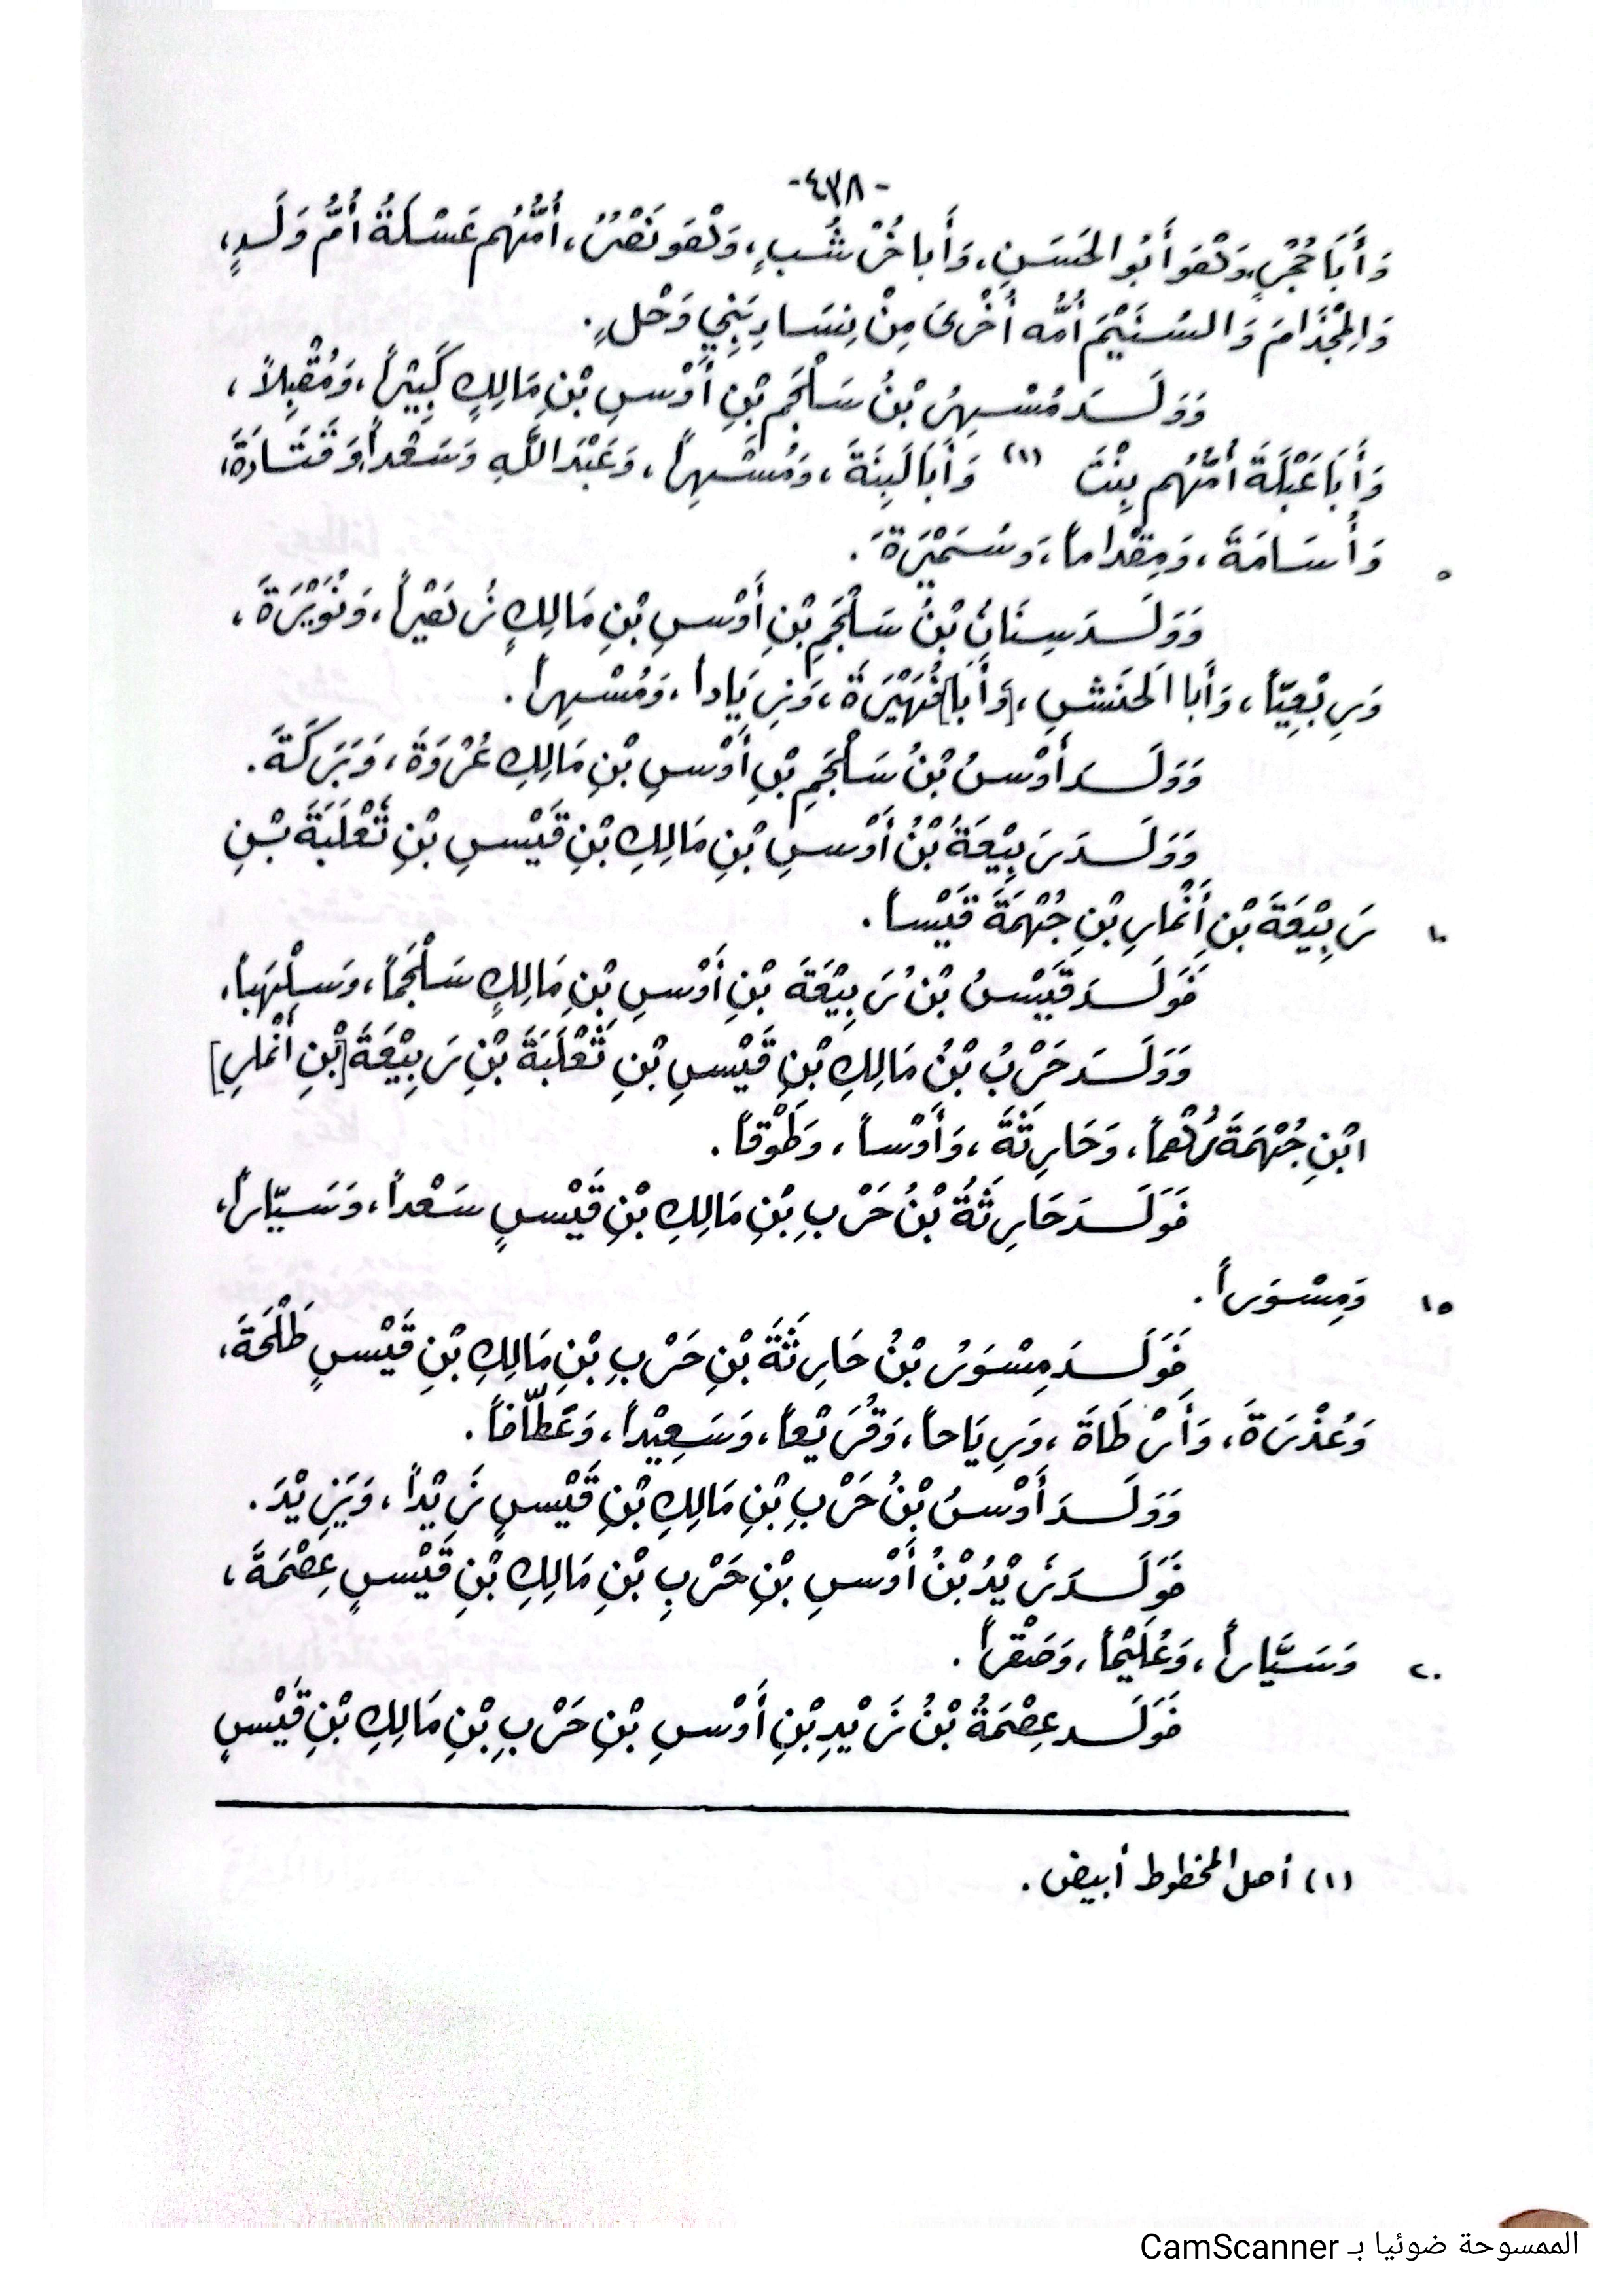 -٤٣٨-
وَأَبَا حُجْرٍ، وَهُوَ أَبُو الحَسَنِ، وَأَبا خُرْشُبٍ، وَهُوَ نَصْرٌ، أُمُّهُم عَسْلَةُ أُمُّ وَلَدٍ،
وَالمِجْذَامَ وَالسُنَيْمَ أُمُّه أُخْرَى مِنْ نِسَاءِ بَنِي وَحْلٍ.
وَوَلَدَ مُسْهِرُ بْنُ سَلْجَمِ بْنِ أَوْسِ بْنِ مَالِكٍ كَبِيْراً، وَمُقْبِلاً،
وَأَبَا عَبْلَةَ أُمُّهُم بِنْتَ (١) وَأَبَا لَبِنَةَ، وَمُسْهِراً، وَعَبْدَ اللَّهِ وَسَعْداً، وَقَتَادَةَ،
وَأُسَامَةَ، وَمِقْداماً، وَسُمَيْرَةَ. ٥
وَوَلَدَ سِنَانُ بْنُ سَلْجَمِ بْنِ أَوْسِ بْنِ مَالِكٍ زُهَيْراً، وَنُوَيْرَةَ،
وَرِبْعِيّاً، وَأَبا الَحنَشِ، [وَأَبَا] فُهَيْرَةَ، وَزِيَاداً، وَمُسْهِراً.
وَوَلَدَ أَوْسُ بْنُ سَلْجَمِ بْنِ أَوْسِ بْنِ مَالِكِ عُرْوَةَ، وَبَرَكَةَ.
وَوَلَدَ رَبِيْعَةُ بْنُ أَوْسِ بْنِ مَالِكِ بْنِ قَيْسِ بْنِ ثَعْلَبَةَ بْنِ
رَبِيْعَةَ بْنِ أَنْمارِ بْنِ جُهْمَةَ قَيْساً. ١٠
فَوَلَدَ قَيْسُ بْنُ رَبِيْعَةَ بْنِ أَوْسِ بْنِ مَالِكٍ سَلْجَماً، وَسِلْهَباً.
وَوَلَدَ حَرْبُ بْنُ مَالِكِ بْنِ قَيْسِ بْنِ ثَعْلَبَةَ بْنِ رَبِيْعَةَ [بْنِ أَنْمارِ]
ابْنِ جُهْمَةَ رُهْماً، وَحَارِثَةَ، وَأَوْساً، وَطَوْقاً.
فَوَلَدَ حَارِثَةُ بْنُ حَرْبِ بْنِ مَالِكِ بْنِ قَيْسٍ سَعْداً، وَسَيّاراً،
وَمِسْوَراً. ١٥
فَوَلَدَ مِسْوَرُ بْنُ حَارِثَةَ بْنِ حَرْبِ بْنِ مَالِكِ بْنِ قَيْسٍ طَلْحَةَ،
وَعُذْرَةَ، وَأَرْطَاةَ، وَرِيَاحاً، وَقُرَيْعاً، وَسَعِيْداً، وَعَطّافاً.
وَوَلَدَ أَوْسُ بْنُ حَرْبِ بْنِ مَالِكِ بْنِ قَيْسٍ زَيْداً، وَيَزِيْدَ.
فَوَلَدَ زَيْدُ بْنُ أَوْسِ بْنِ حَرْبِ بْنِ مَالِكِ بْنِ قَيْسٍ عِصْمَةَ،
وَسَيَّاراً، وَعُلَيْماً، وَصَقْراً. ٢٠
فَوَلَدَ عِصْمَةُ بْنُ زَيْدِ بْنِ أَوْسِ بْنِ حَرْبِ بْنِ مَالِكِ بْنِ قَيْسٍ
(١) أصل المخطوط أبيض.
الممسوحة ضوئيا بـ CamScanner